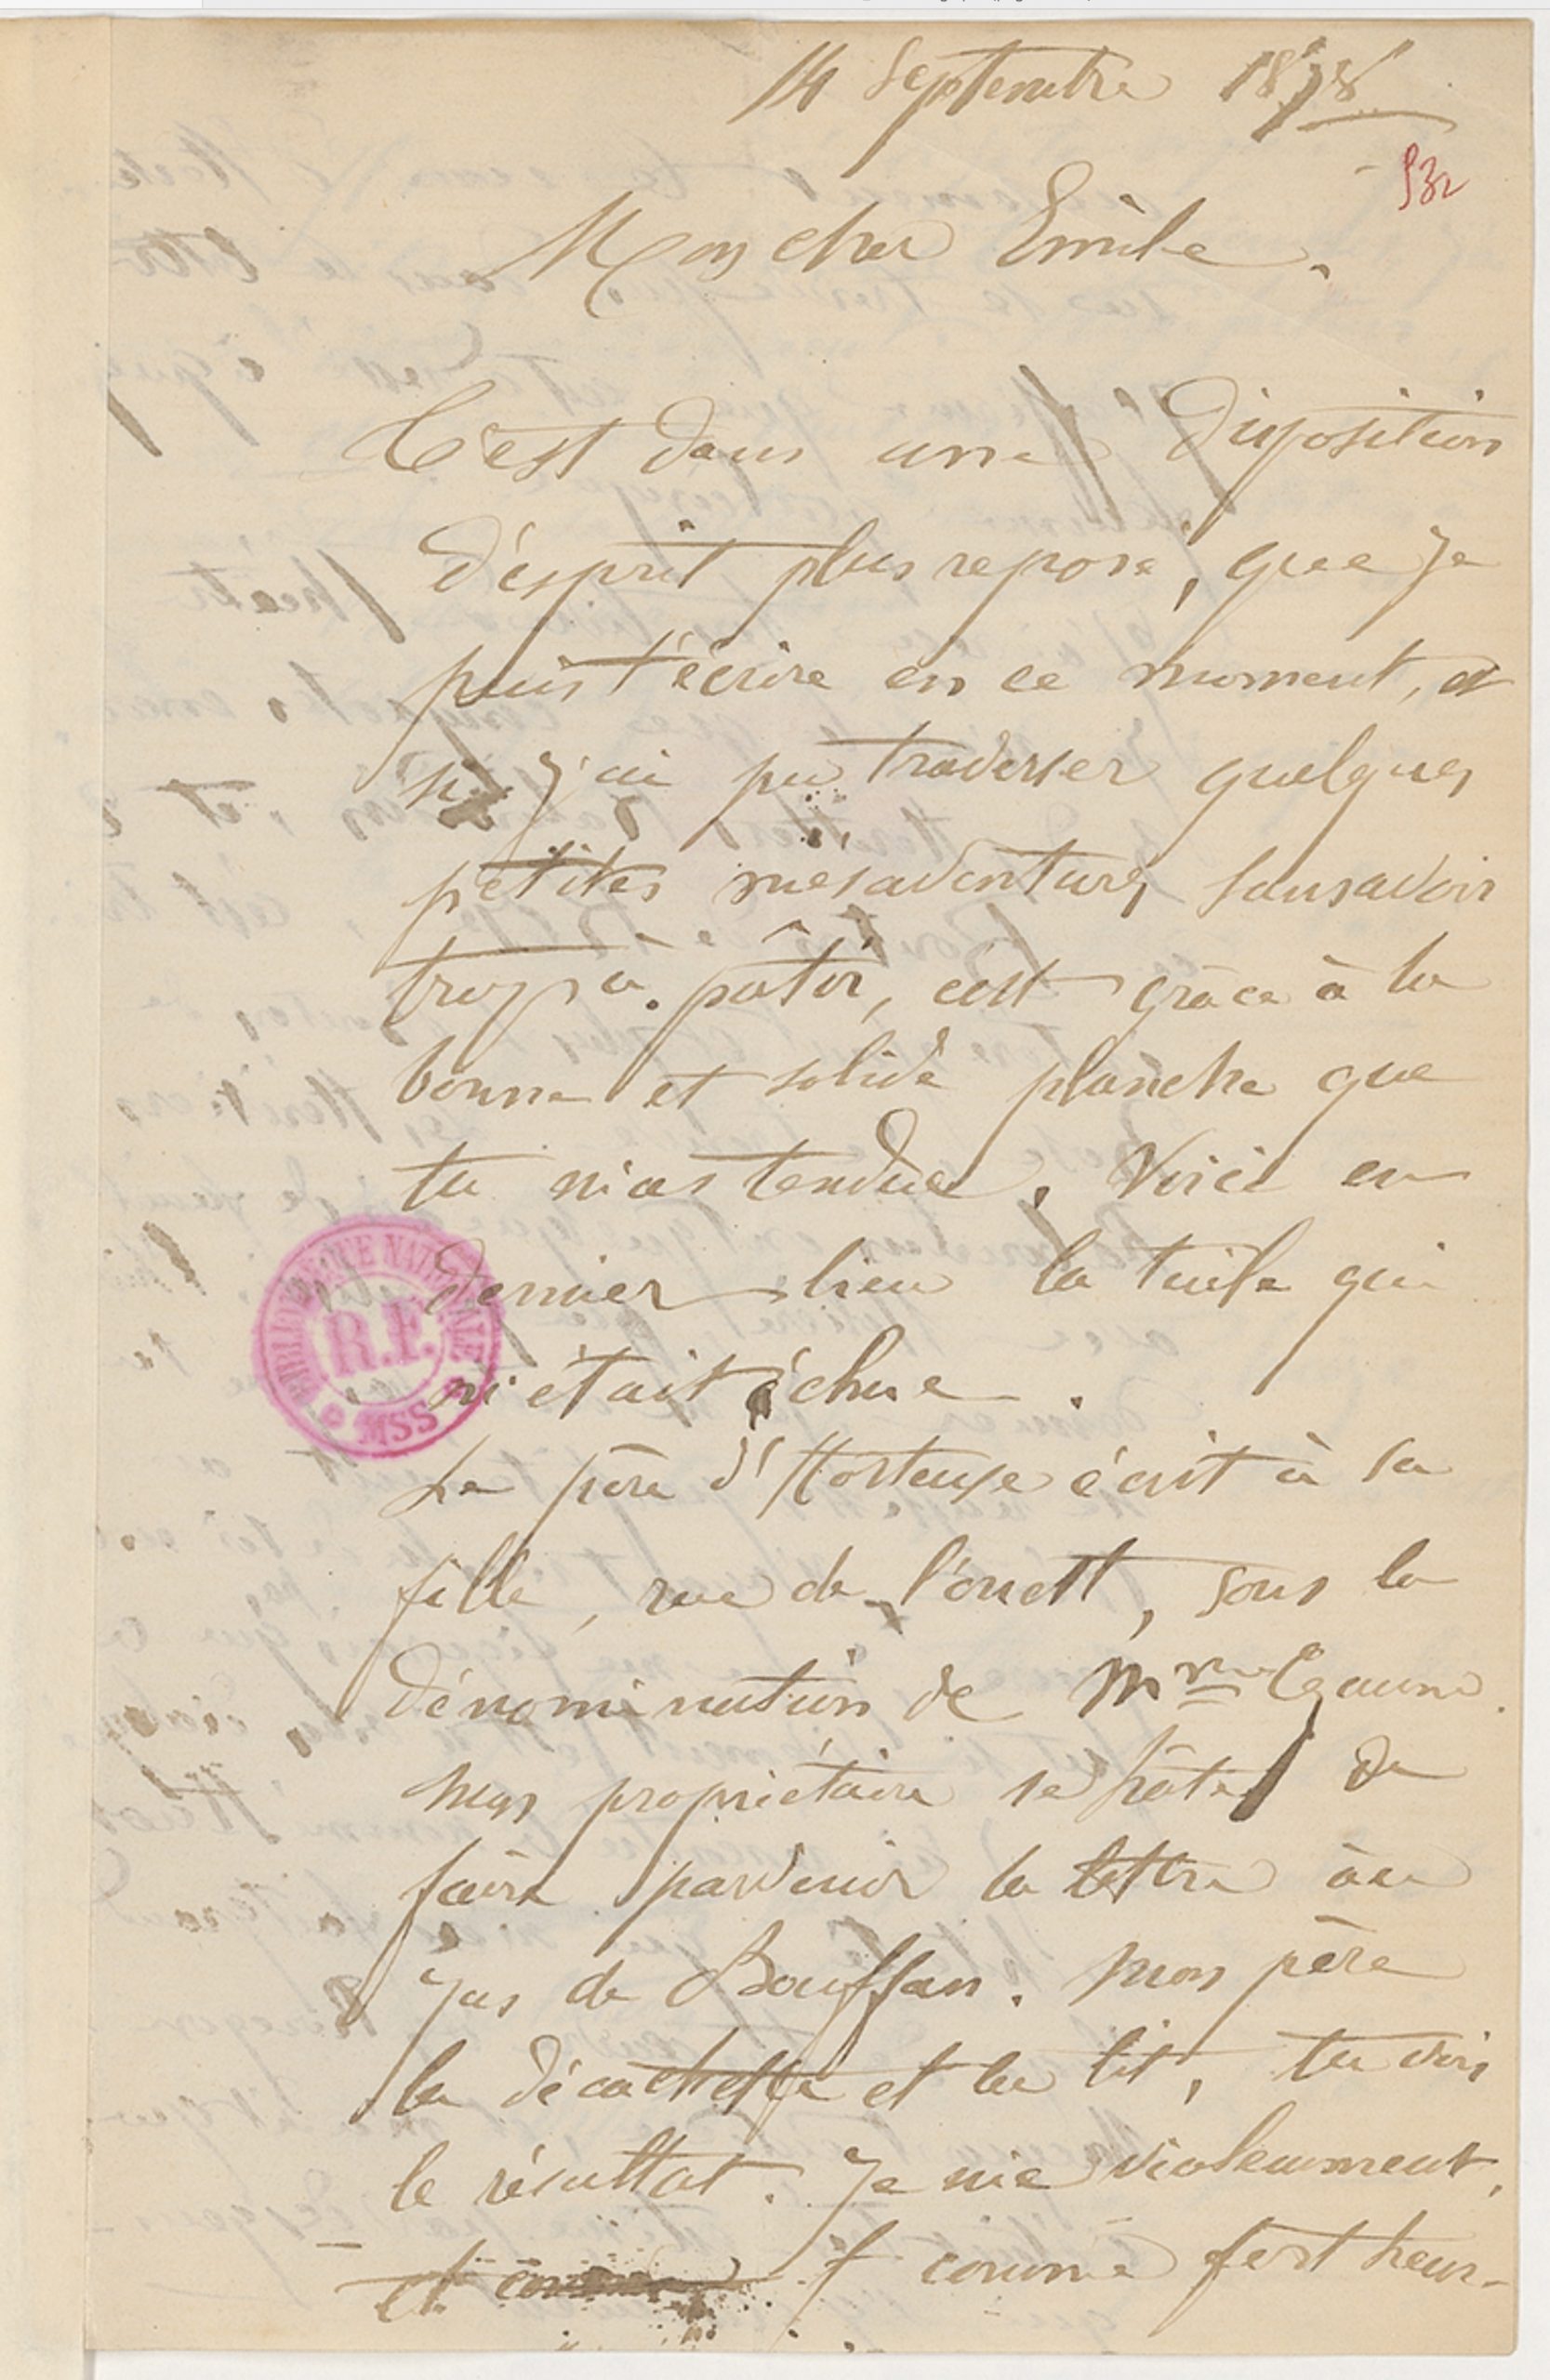 14 Septembre 1878
532
Mon cher Emile.
C'est dans une disposition
d'esprit plus reposé, que je
puis t'écrire en ce moment, et
si j'ai pu traverser quelques
petites mésaventures sans avoir
trop à pâtir, c'est grâce à la
bonne et solide planche que
tu m'as tendue. Voici en
dernier lieu la tuile qui
m'était échue.
BIBLIOTHEQUE NATIONALE
R.F.
MSS
Le père d'Hortense écrit à sa
fille, rue de l'ouest, sous la
dénomination de Mme Cezanne.
Mon propriétaire se hâte de
faire parvenir la lettre au
Jas de Bouffan. Mon père
la décachette et la lit, tu vois
le résultat. Je nie violemment,
et comme et comme fort heur-